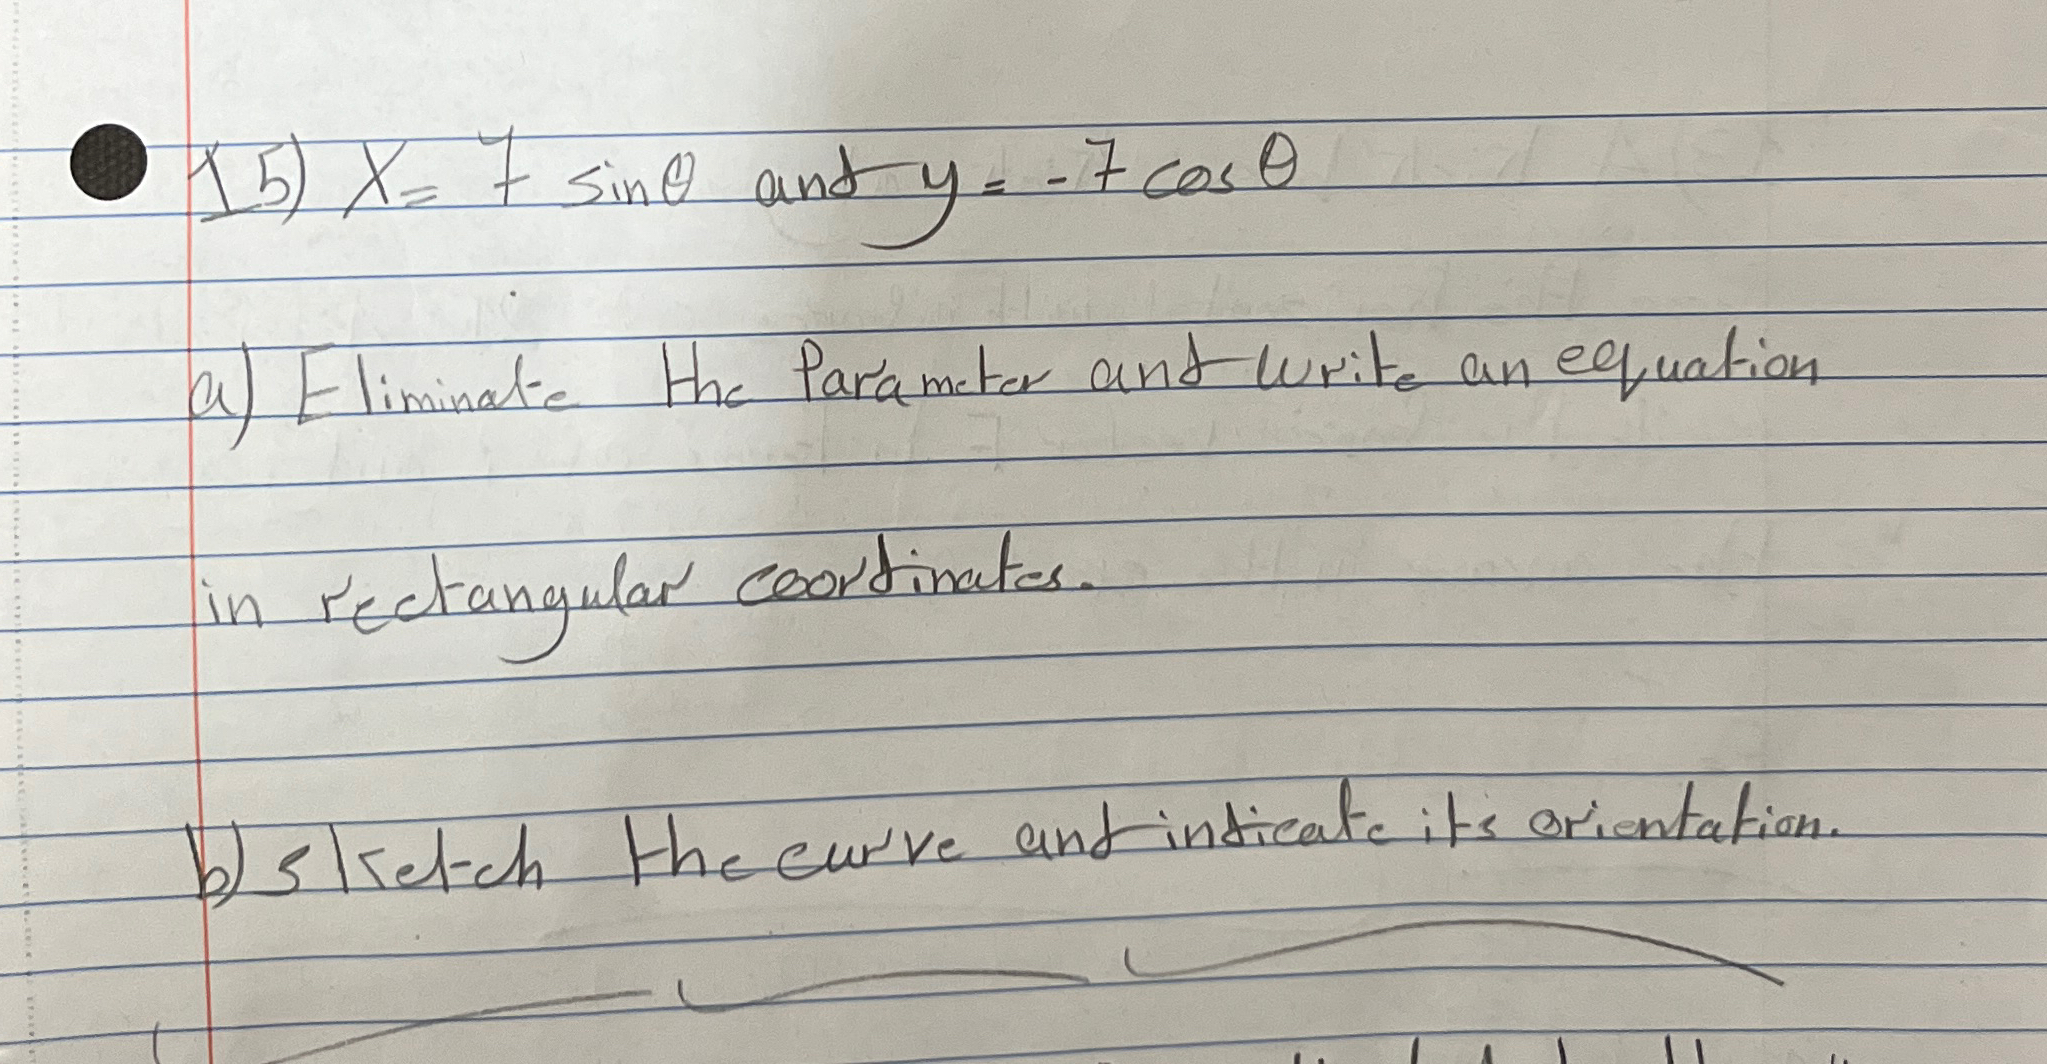 15) X= 7 sinθ and y = -7 cos θ
a) Eliminate the Parameter and write an equation
in rectangular coordinates.
b) sketch the curve and indicate its orientation.